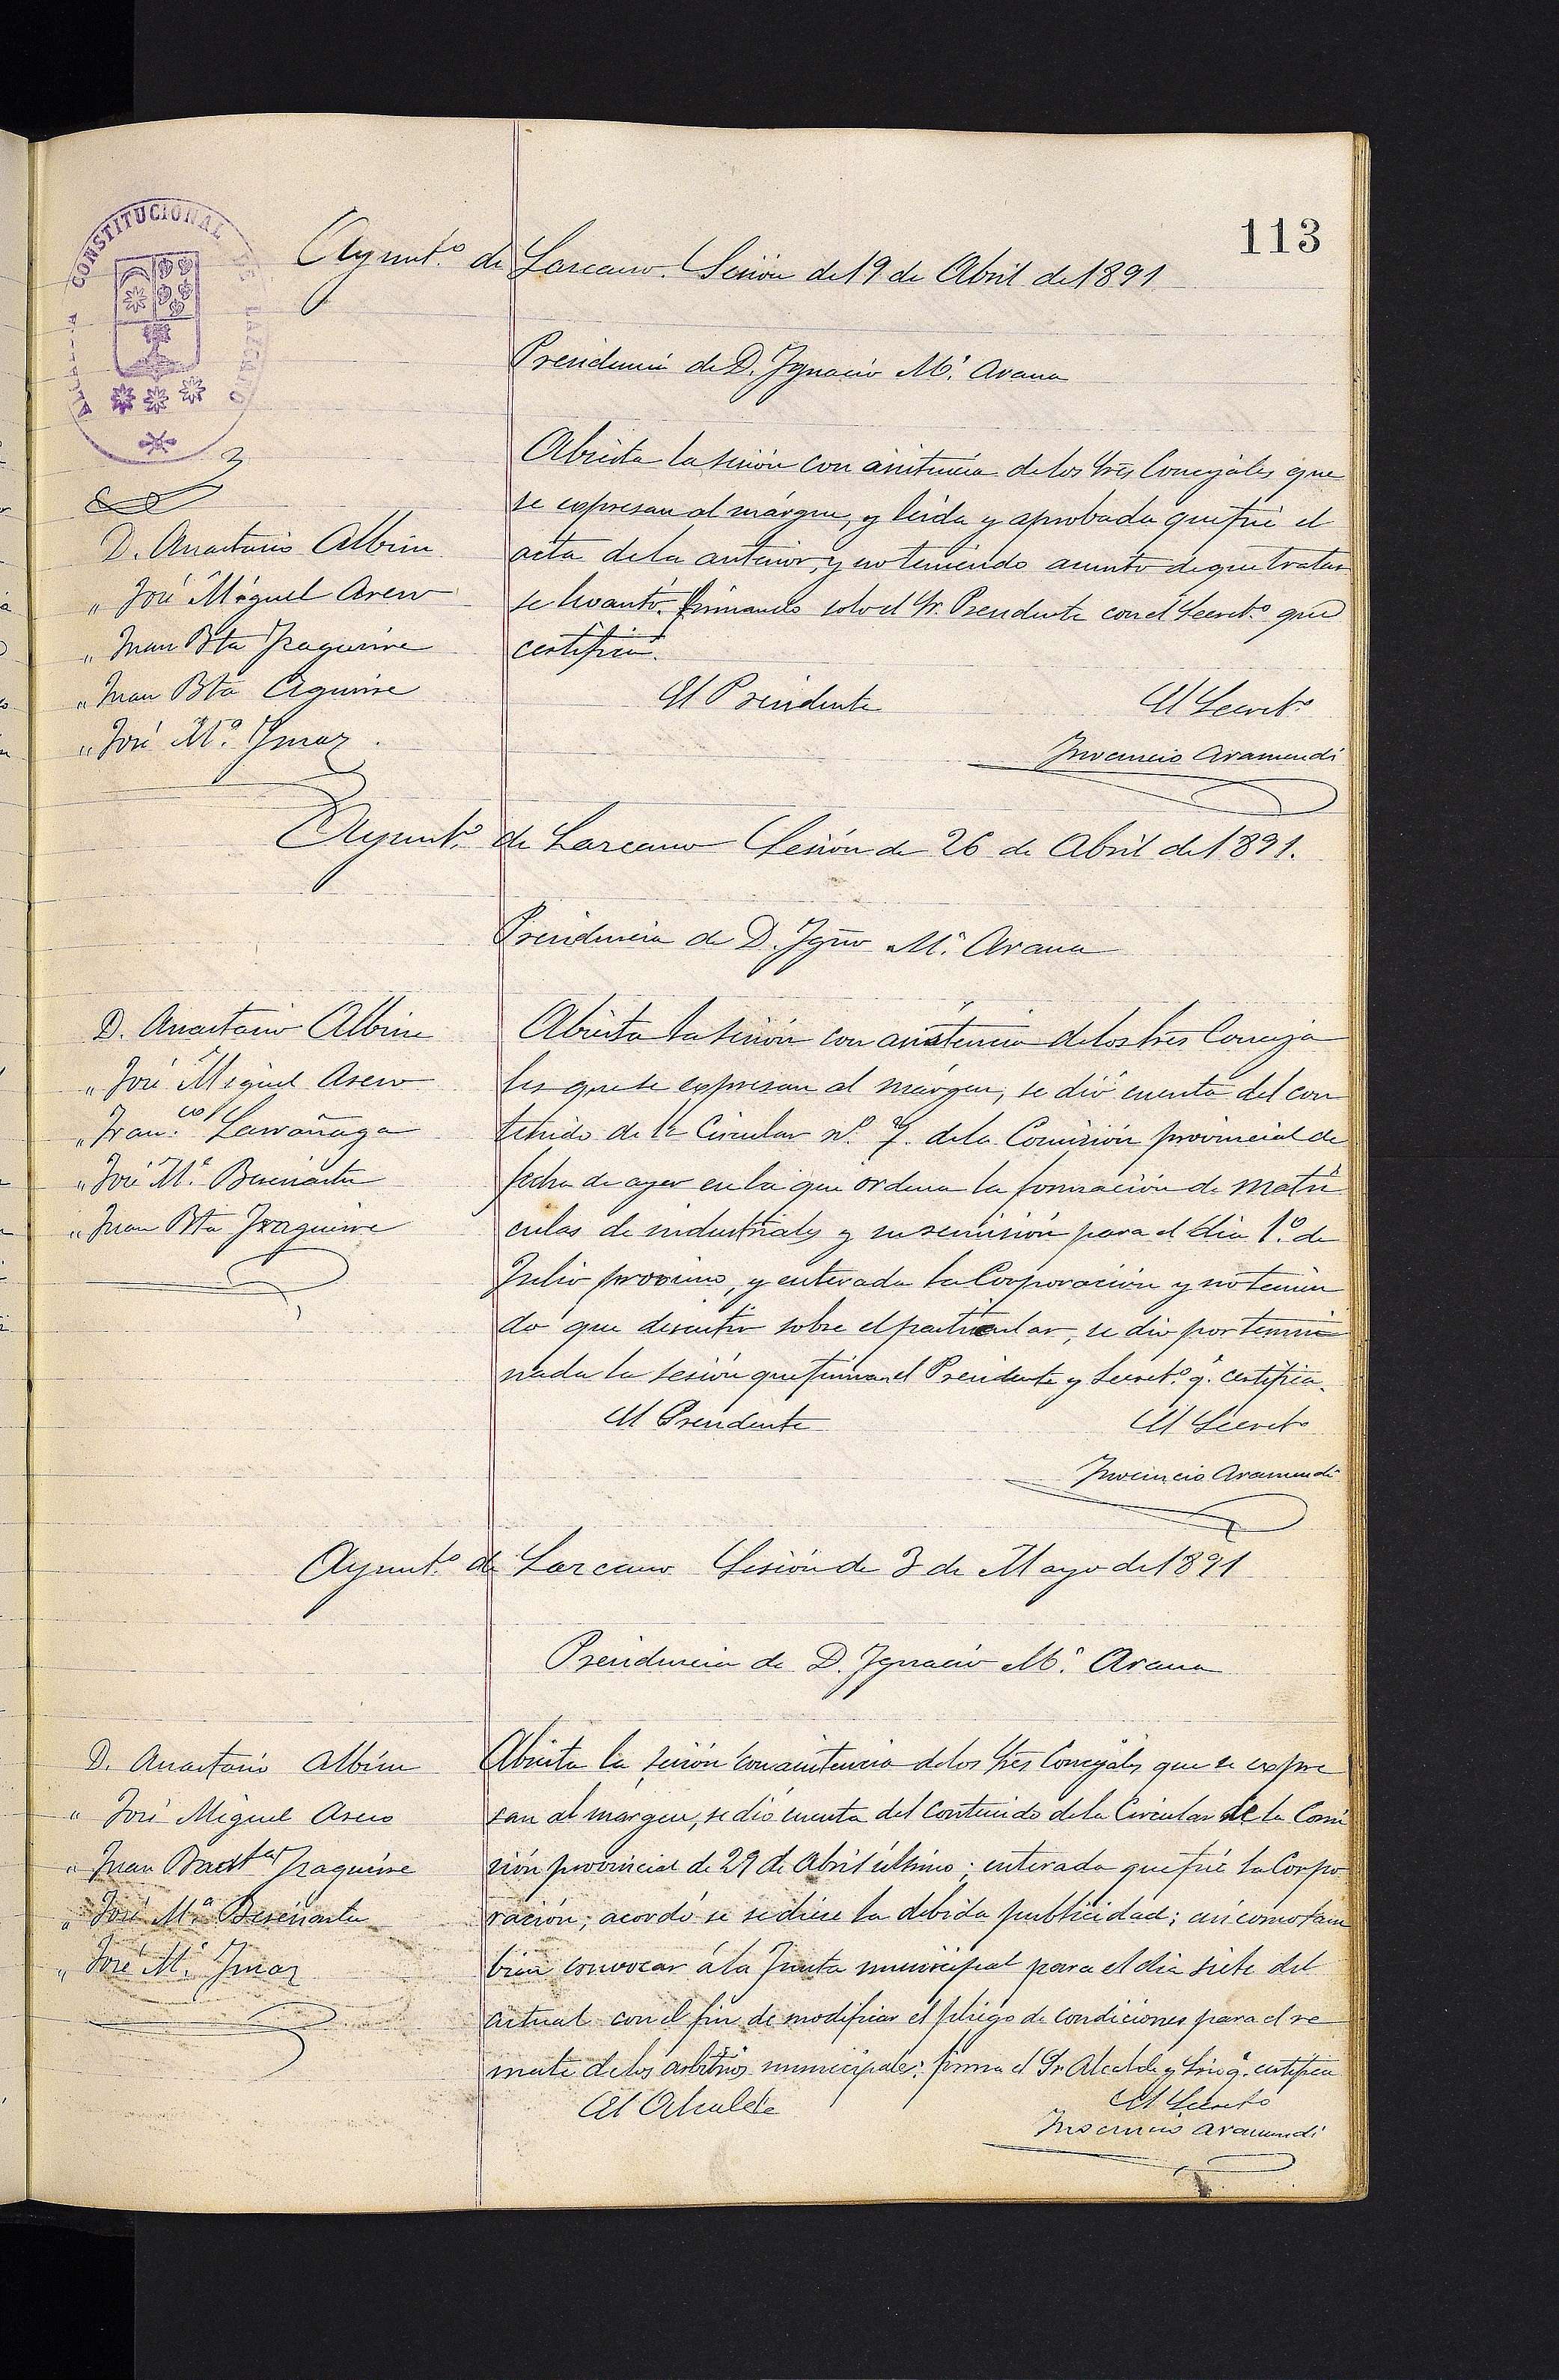 113
ALCALDIA CONSTITUCIONAL DE LAZCANO
Ayunt.º de Lazcano. Sesión de 19 de Abril de 1891
Presidencia de D. Ignacio M.ª Arana
D. Anastasio Albisu
" José Miguel Aseno
" Juan Bta Yzaguirre
" Juan Bta Aguirre
" José M.ª Ymaz.
Abierta la sesión con asistencia de los Sres Concejales que
se expresan al márgen, y leida y aprobada que fué el
acta de la anterior, y no teniendo asunto de que tratar
se levantó, firmando solo el Sr. Presidente con el Secret.º que
certifica.
El Presidente
El Secret.º
Inocencio Aramendi
Ayunt.º de Lazcano Sesión de 26 de Abril de 1891.
Presidencia de D. Ignº M.ª Arana
D. Anastasio Albisu
" José Miguel Aseno
" Fran.co Larrañaga
" José M.ª Bereciartu
" Juan Bta Yzaguirre
Abierta la sesión con asistencia de los Sres Conceja
les que se expresan al márgen, se dió cuenta del con
tenido de la Circular nº. 7. de la Comisión provincial de
fecha de ayer en la que ordena la formación de matrí
culas de industriales y su remisión para el dia 1.º de
Julio proximo, y enterada la Corporación y no tenien
do que discutir sobre el particular, se dio por termi
nada la sesión que firma el Presidente y Secret.º q. certifica.
El Presidente
El Secretº
Inocencio Aramendi
Ayunt.º de Lazcano Sesión de 3 de Mayo de 1891
Presidencia de D. Ignacio M.ª Arana
D. Anastasio Albisu
" José Miguel Aseno
" Juan Bautta Yzaguirre
" José M.ª Bereciartu
" José M.ª Ymaz
Abierta la sesión con asistencia de los Sres Concejales que se expre
san al margen, se dió cuenta del contenido de la Circular de la Comi
sión provincial de 29 de Abril último; enterada que fué la Corpo
ración, acordó se se diese la debida publicidad; así como tam
bien convocar á la Junta municipal para el dia siete del
actual con el fin de modificar el pliego de condiciones para el re
mate de los arbitrios municipales: firma el Sr. Alcalde y Srio q. certifica
El Alcalde
El Secretº
Inocencio Aramendi